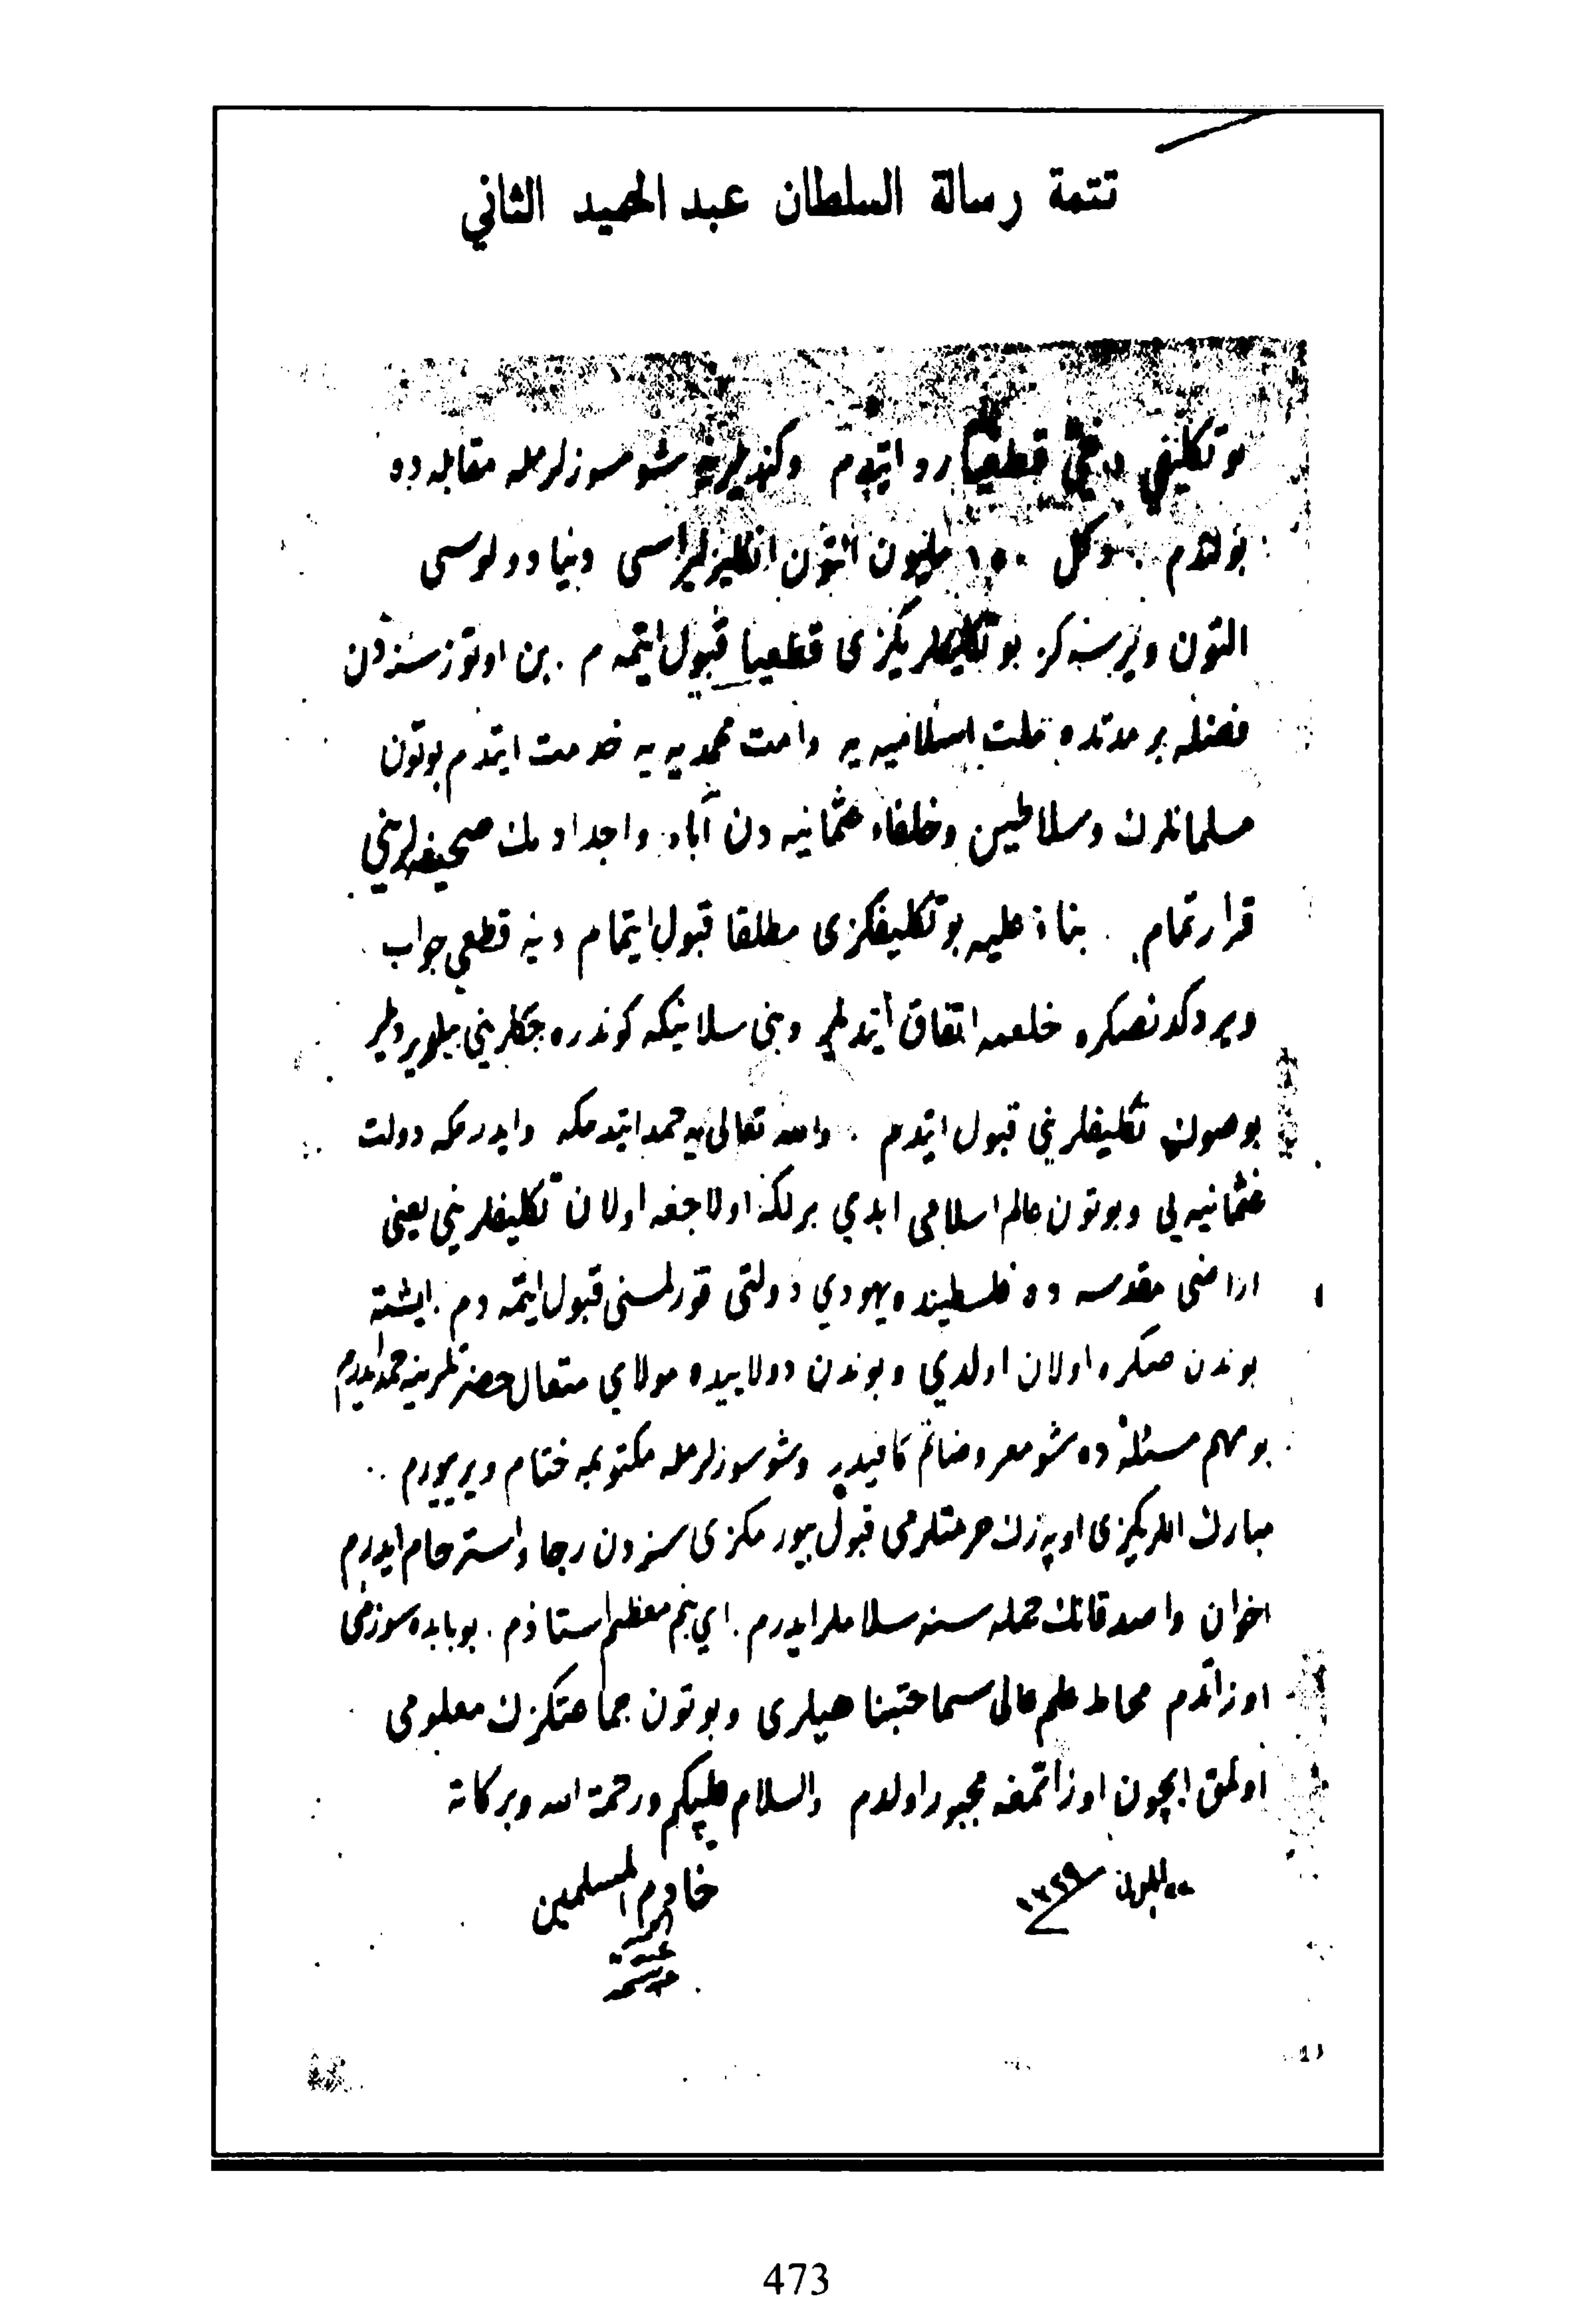 تتمة رسالة السلطان عبد الحميد الثاني
بو تكليفي دخي قطعيا رد ايتدم وكنديلرينه شو سوزلرمله مقابله ده
بولندم . دكل ١٥٠ مليون التون انكليز ليراسى دنيا دولوسى
التون ويرسه كز بو تكليفلريكزى قطعيا قبول ايتمه م . بن اوتوز سنه دن
فضله بر مدتده ملت اسلاميه يه وامت محمديه يه خدمت ايتدم بوتون
مسلمانلرك وسلاطين وخلفاء عثمانيه دن آباء واجدادمك صحيفه لريني
قرارتمام . بناءً عليه بو تكليفكزى مطلقا قبول ايتمام دييه قطعي جواب
ويردكدنصكره خلعمه اتفاق ايتديلر وبنى سلانيكه كوندره جكلريني بيلديرديلر
بو صوك تكليفلريني قبول ايتدم . والله تعالى يه حمد ايتدمكه وايدرمكه دولت
عثمانيه يى وبوتون عالم اسلامى ابدي بر لكه اولاجغه اولان تكليفلريني يعنى
اراضى مقدسه ده فلسطينده يهودي دولتى قورلمسنى قبول ايتمه دم . ايشته
بوندن صكره اولان اولدي وبوندن دولاييده مولاي متعال حضرتلرينه حمد ايدرم
بو مهم مسئله ده شو معروضاتم كافيدر وشو سوزلرمله مكتوبمه ختام ويرييورم ..
مبارك اللريكزى اوپه رك حرمتلرمى قبول بيورمكزى سزدن رجا واسترحام ايدرم
اخوان واصدقانك جمله سنه سلاملر ايدرم . اي بنم معظم استاذم . بو بابده سوزمى
اوزاتدم محاط علم عالى سماحتپناهيلرى وبوتون جماعتكزك معلومى
اولمق ايچون اوزاتمغه مجبور اولدم والسلام عليكم ورحمة الله وبركاته
ايلول ١٣٢٩
خادم المسلمين
473